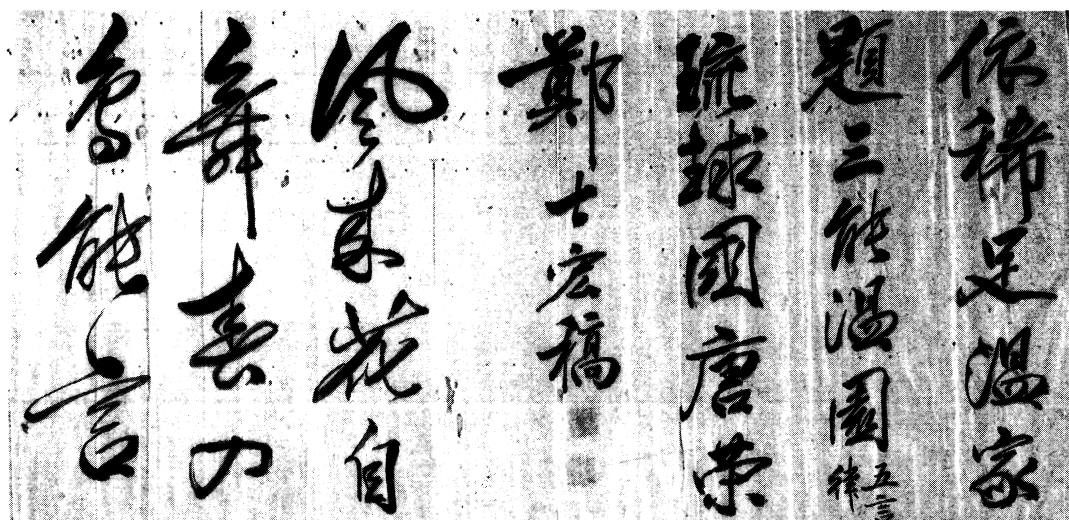 依稀足温家
題三能温園五言律
琉球國唐榮
鄭士宏稿
風來花自
舞春入
鳥能言